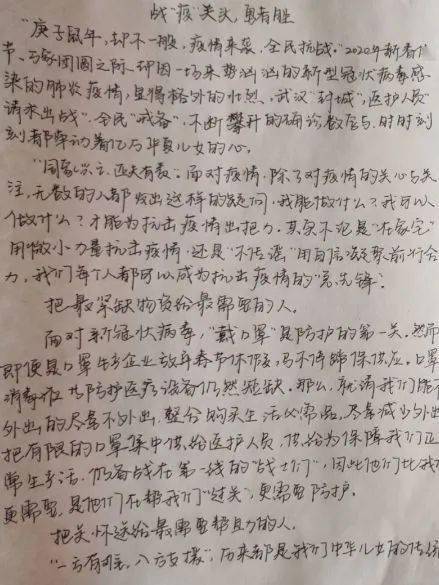 战"疫"关头,勇者胜
"庚子鼠年,却不一般,疫情来袭,全民抗战。"2020年新春佳
节、万家团圆之际,却因一场来势汹汹的新型冠状病毒感
染的肺炎疫情,显得格外的壮烈。武汉"封城",医护人员"
请求出战",全民"戒备",不断攀升的确诊数字与,时时刻
刻都牵动着亿万华夏儿女的心。
"国家兴亡,匹夫有责。"面对疫情,除了对疫情的关心与关
注,无数的人都发出这样的疑问,我能做什么?我可以
做什么?才能为抗击疫情出把力。其实不论是"在家宅"
用微小力量抗击疫情,还是"不传谣"用自信凝聚前行合
力,我们每个人都可以成为抗击疫情的"急先锋"。
把最紧缺物资给最需要的人。
面对新冠状病毒,"戴口罩"是防护的第一关。然而
即便是口罩生产企业放弃春节休假,马不停蹄保供应。口罩
消毒液等防护医疗设备仍然短缺。那么,就请我们能不
外出的尽量不外出,整合购买生活必需品,尽量减少外出
把有限的口罩集中供给医护人员,供给为保障我们正
常生活,仍奋战在第一线的"战士们",因此他们比我们
更需要,是他们在帮我们"过关",更需要防护。
把关怀送给最需要帮助的人。
"一方有难,八方支援",历来都是我们中华儿女的传统